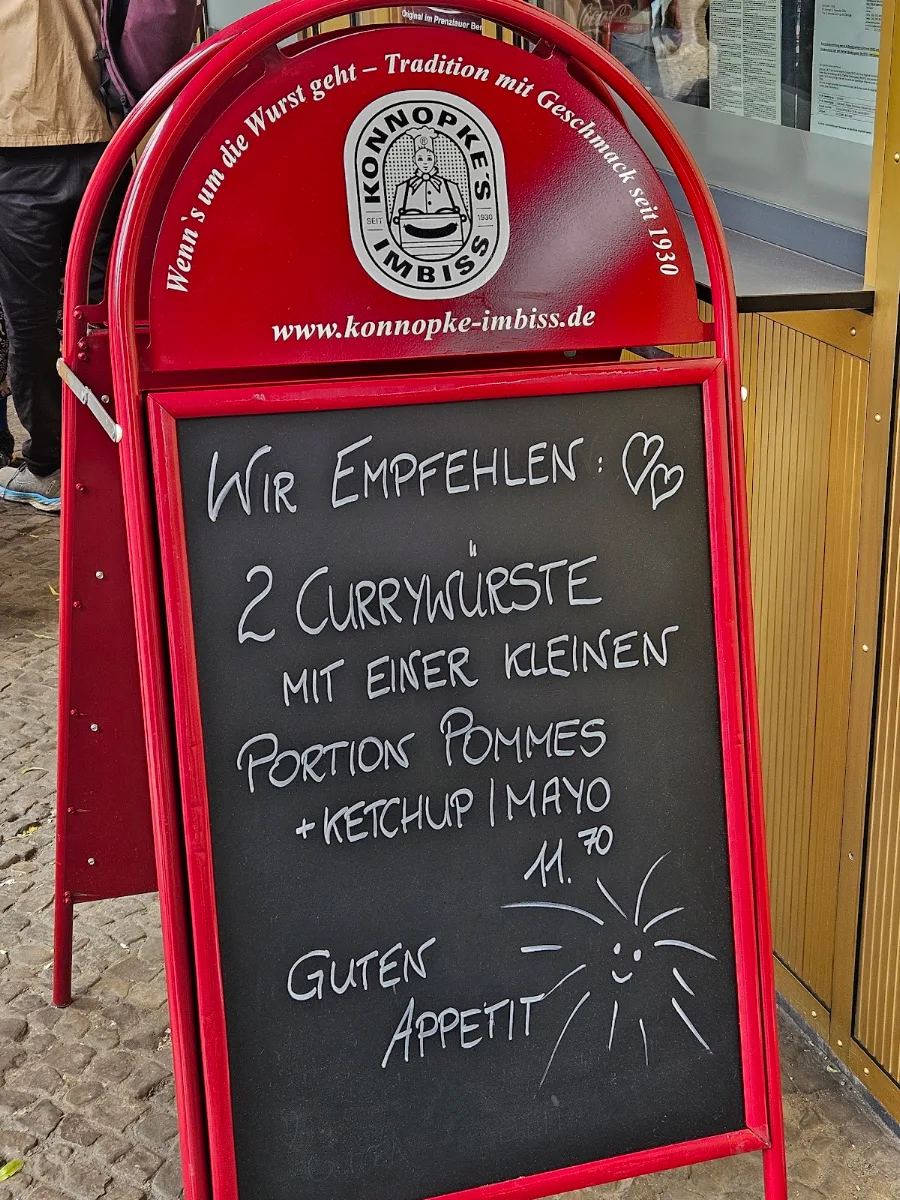 Original im Prenzlauer Ber
Wenn`s um die Wurst geht – Tradition mit Geschmack seit 1930
KONNOPKE'S
SEIT 1930
IMBISS
www.konnopke-imbiss.de
WIR EMPFEHLEN :
2 CURRYWÜRSTE
MIT EINER KLEINEN
PORTION POMMES
+KETCHUP | MAYO
11.70
GUTEN
APPETIT
Coca-Cola